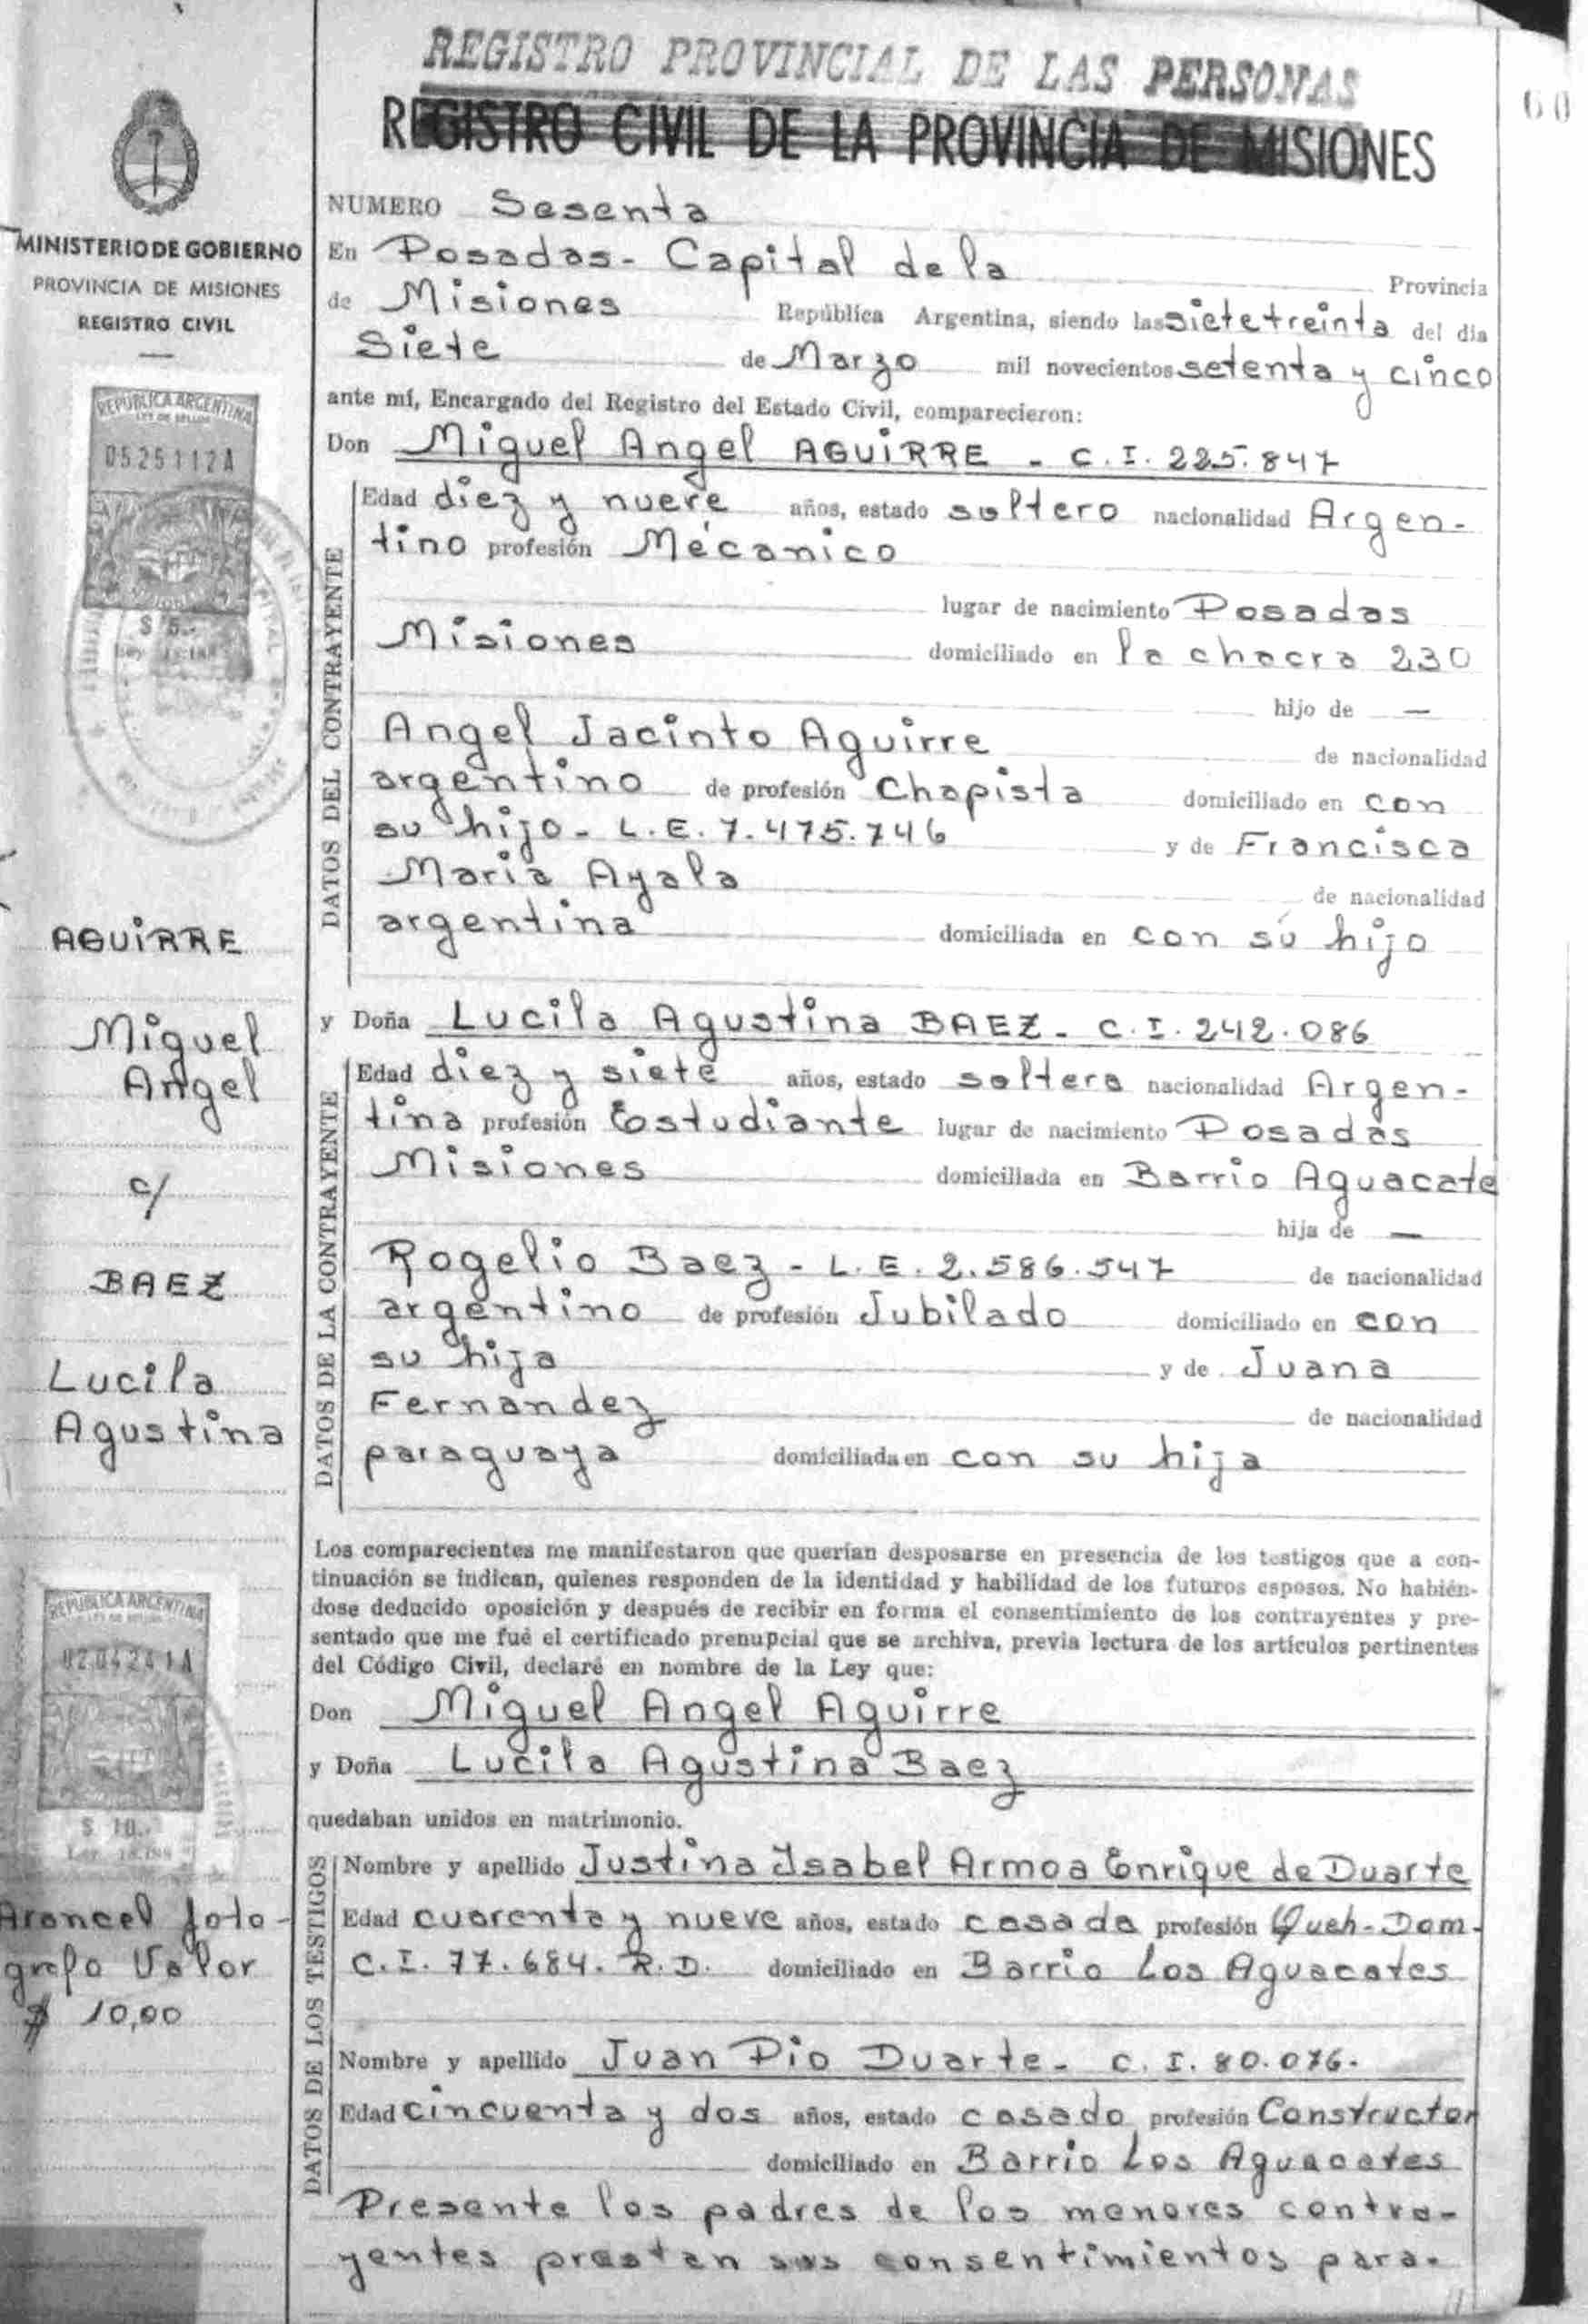 REGISTRO PROVINCIAL DE LAS PERSONAS
REGISTRO CIVIL DE LA PROVINCIA DE MISIONES
60
MINISTERIO DE GOBIERNO
PROVINCIA DE MISIONES
REGISTRO CIVIL
REPUBLICA ARGENTINA
LEY DE SELLOS
0525112A
$ 5.-
AGUIRRE
Miguel
Angel
c/
BAEZ
Lucila
Agustina
REPUBLICA ARGENTINA
0204241A
$ 10.-
Arancel foto-
grafo Valor
$ 10,00
NUMERO Sesenta
En Posadas - Capital de la Provincia
de Misiones República Argentina, siendo las siete treinta del día
Siete de Marzo mil novecientos setenta y cinco
ante mí, Encargado del Registro del Estado Civil, comparecieron:
Don Miguel Angel AGUIRRE - C.I. 225.847
DATOS DEL CONTRAYENTE
Edad diez y nueve años, estado soltero nacionalidad Argen-
tino profesión Mécanico
lugar de nacimiento Posadas
Misiones domiciliado en la chacra 230
hijo de —
Angel Jacinto Aguirre de nacionalidad
argentino de profesión Chapista domiciliado en con
su hijo - L.E. 7.475.746 y de Francisca
Maria Ayala de nacionalidad
argentina domiciliada en con su hijo
y Doña Lucila Agustina BAEZ - C.I. 242.086
DATOS DE LA CONTRAYENTE
Edad diez y siete años, estado soltera nacionalidad Argen-
tina profesión Estudiante lugar de nacimiento Posadas
Misiones domiciliada en Barrio Aguacate
hija de —
Rogelio Baez - L.E. 2.586.547 de nacionalidad
argentino de profesión Jubilado domiciliado en con
su hija y de Juana
Fernandez de nacionalidad
paraguaya domiciliada en con su hija
Los comparecientes me manifestaron que querían desposarse en presencia de los testigos que a con-
tinuación se indican, quienes responden de la identidad y habilidad de los futuros esposos. No habién-
dose deducido oposición y después de recibir en forma el consentimiento de los contrayentes y pre-
sentado que me fué el certificado prenupcial que se archiva, previa lectura de los artículos pertinentes
del Código Civil, declaré en nombre de la Ley que:
Don Miguel Angel Aguirre
y Doña Lucila Agustina Baez
quedaban unidos en matrimonio.
DATOS DE LOS TESTIGOS
Nombre y apellido Justina Isabel Armoa Enrique de Duarte
Edad cuarenta y nueve años, estado casada profesión Queh-Dom.
C.I. 77.684. R.D. domiciliado en Barrio Los Aguacates
Nombre y apellido Juan Pio Duarte - C.I. 80.076.
Edad cincuenta y dos años, estado casado profesión Constructor
domiciliado en Barrio Los Aguacates
Presente los padres de los menores contra-
yentes prestan sus consentimientos para.